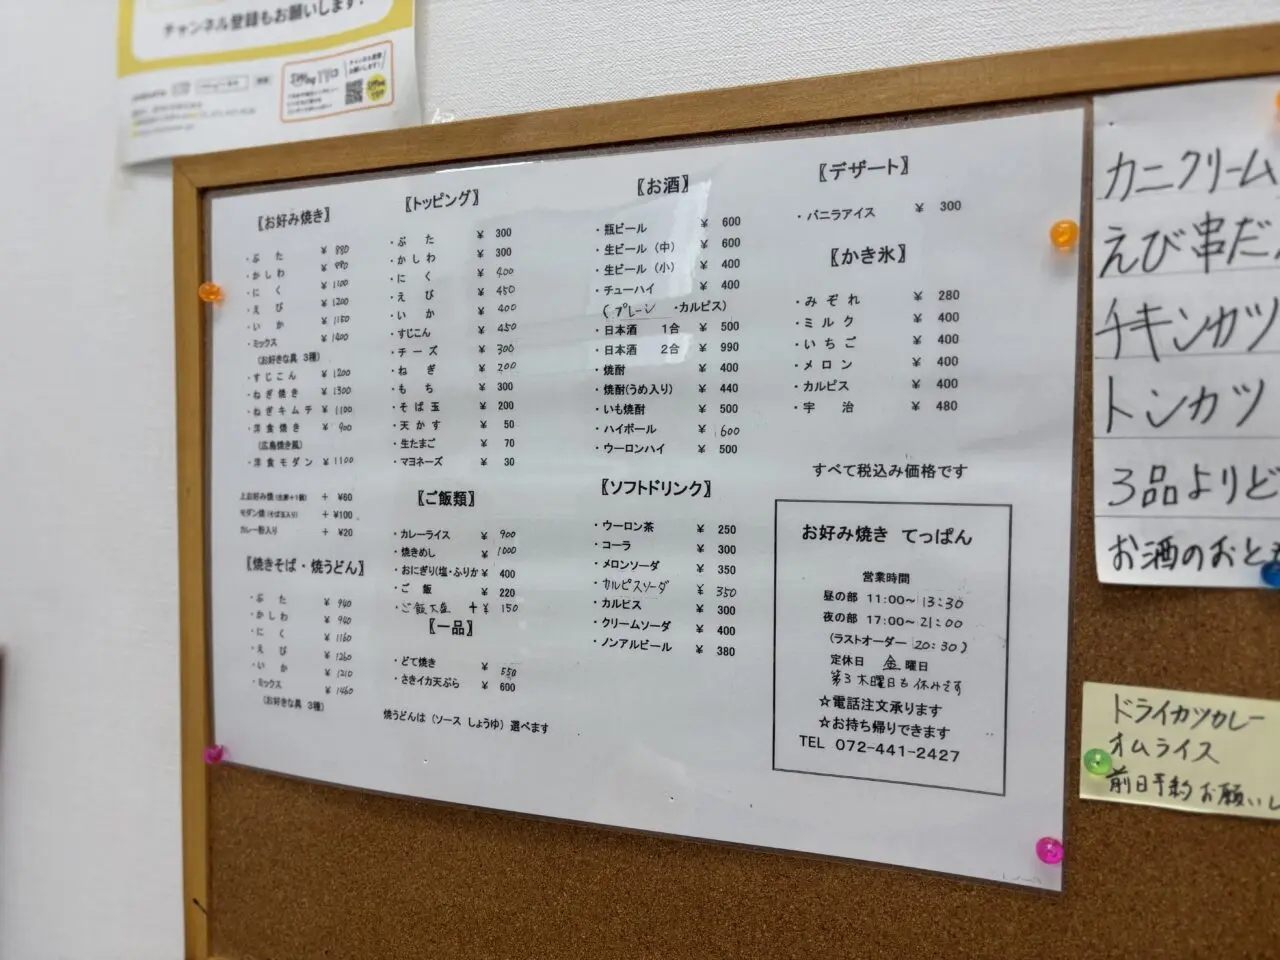 チャンネル登録もお願いします!
【お好み焼き】
・ぶた ¥880
・かしわ ¥880
・にく ¥1100
・えび ¥1200
・いか ¥1150
・ミックス ¥1400
(お好きな具 3種)
・すじこん ¥1200
・ねぎ焼き ¥1300
・ねぎキムチ ¥1100
・洋食焼き ¥900
(広島焼き風)
・洋食モダン ¥1100
上お好み焼(玉子+1個) + ¥60
モダン焼(そば玉入り) + ¥100
カレー粉入り + ¥20
【焼きそば・焼うどん】
・ぶた ¥940
・かしわ ¥940
・にく ¥1160
・えび ¥1260
・いか ¥1210
・ミックス ¥1460
(お好きな具 3種)
【トッピング】
・ぶた ¥300
・かしわ ¥300
・にく ¥400
・えび ¥450
・いか ¥400
・すじこん ¥450
・チーズ ¥300
・ねぎ ¥200
・もち ¥300
・そば玉 ¥200
・天かす ¥50
・生たまご ¥70
・マヨネーズ ¥30
【ご飯類】
・カレーライス ¥900
・焼きめし ¥1000
・おにぎり(塩・ふりか ¥400
・ご飯 ¥220
・ご飯大盛 +¥150
【一品】
・どて焼き ¥550
・さきイカ天ぷら ¥600
焼うどんは(ソース しょうゆ)選べます
【お酒】
・瓶ビール ¥600
・生ビール(中) ¥600
・生ビール(小) ¥400
・チューハイ ¥400
(プレーン ・カルピス)
・日本酒 1合 ¥500
・日本酒 2合 ¥990
・焼酎 ¥400
・焼酎(うめ入り) ¥440
・いも焼酎 ¥500
・ハイボール ¥600
・ウーロンハイ ¥500
【ソフトドリンク】
・ウーロン茶 ¥250
・コーラ ¥300
・メロンソーダ ¥350
・カルピスソーダ ¥350
・カルピス ¥300
・クリームソーダ ¥400
・ノンアルビール ¥380
【デザート】
・バニラアイス ¥300
【かき氷】
・みぞれ ¥280
・ミルク ¥400
・いちご ¥400
・メロン ¥400
・カルピス ¥400
・宇治 ¥480
すべて税込み価格です
お好み焼き てっぱん
営業時間
昼の部 11:00～13:30
夜の部 17:00～21:00
(ラストオーダー 20:30)
定休日 金曜日
第3木曜日も休みです
☆電話注文承ります
☆お持ち帰りできます
TEL 072-441-2427
カニクリーム
えび串だ
チキンカツ
トンカツ
3品よりど
お酒のおと
ドライカツカレー
オムライス
前日予約お願いし